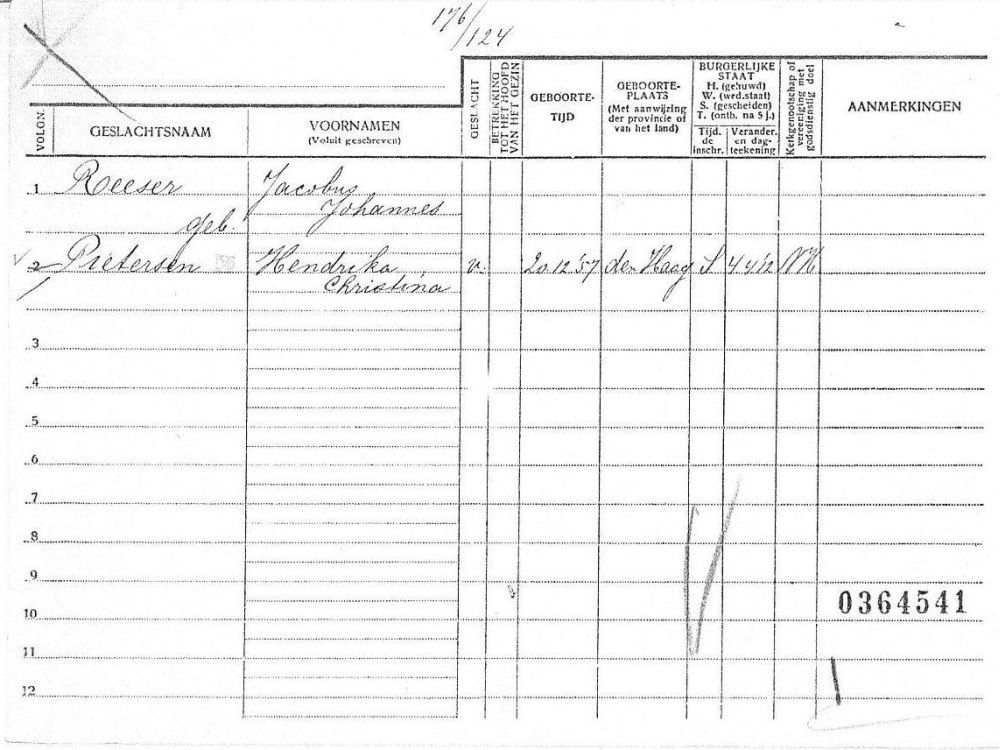 176/124
VOLGN.
GESLACHTSNAAM
VOORNAMEN
(Voluit geschreven)
GESLACHT
BETREKKING TOT HET HOOFD VAN HET GEZIN
GEBOORTE-
TIJD
GEBOORTE-
PLAATS
(Met aanwijzing
der provincie of
van het land)
BURGERLIJKE
STAAT
H. (gehuwd)
W. (wed.staat)
S. (gescheiden)
T. (ontb. na 5 j.)
Tijd.
de
inschr.
Verander.
en dag-
teekening
Kerkgenootschap of
vereeniging met
godsdienstig doel
AANMERKINGEN
1 Reeser Jacobus
Johannes
geb.
2 Pietersen Hendrika v. 20.12.'57 den Haag S 4 4 '12 NH
Christina
3
4
5
6
7
8
9
10
0364541
11
12